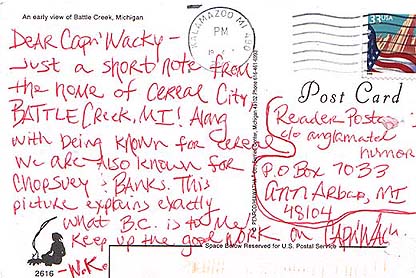 An early view of Battle Creek, Michigan
Dear Cap'n Wacky-
Just a short note from
the home of Cereal City,
BATTLE Creek, MI! Along
with being known for cereal
we are also known for
Chopsuey & Banks. This
picture explains exactly
what B.C. is to me!
Keep up the good work on CAP'N WACKY
-W.K.
2616
KALAMAZOO MI 490
PM
33 USA
Post Card
Reader Posts
c/o angrmated
humor
P.O Box 7033
Ann Arbor, MI
48104
Space Below Reserved for U.S. Postal Service